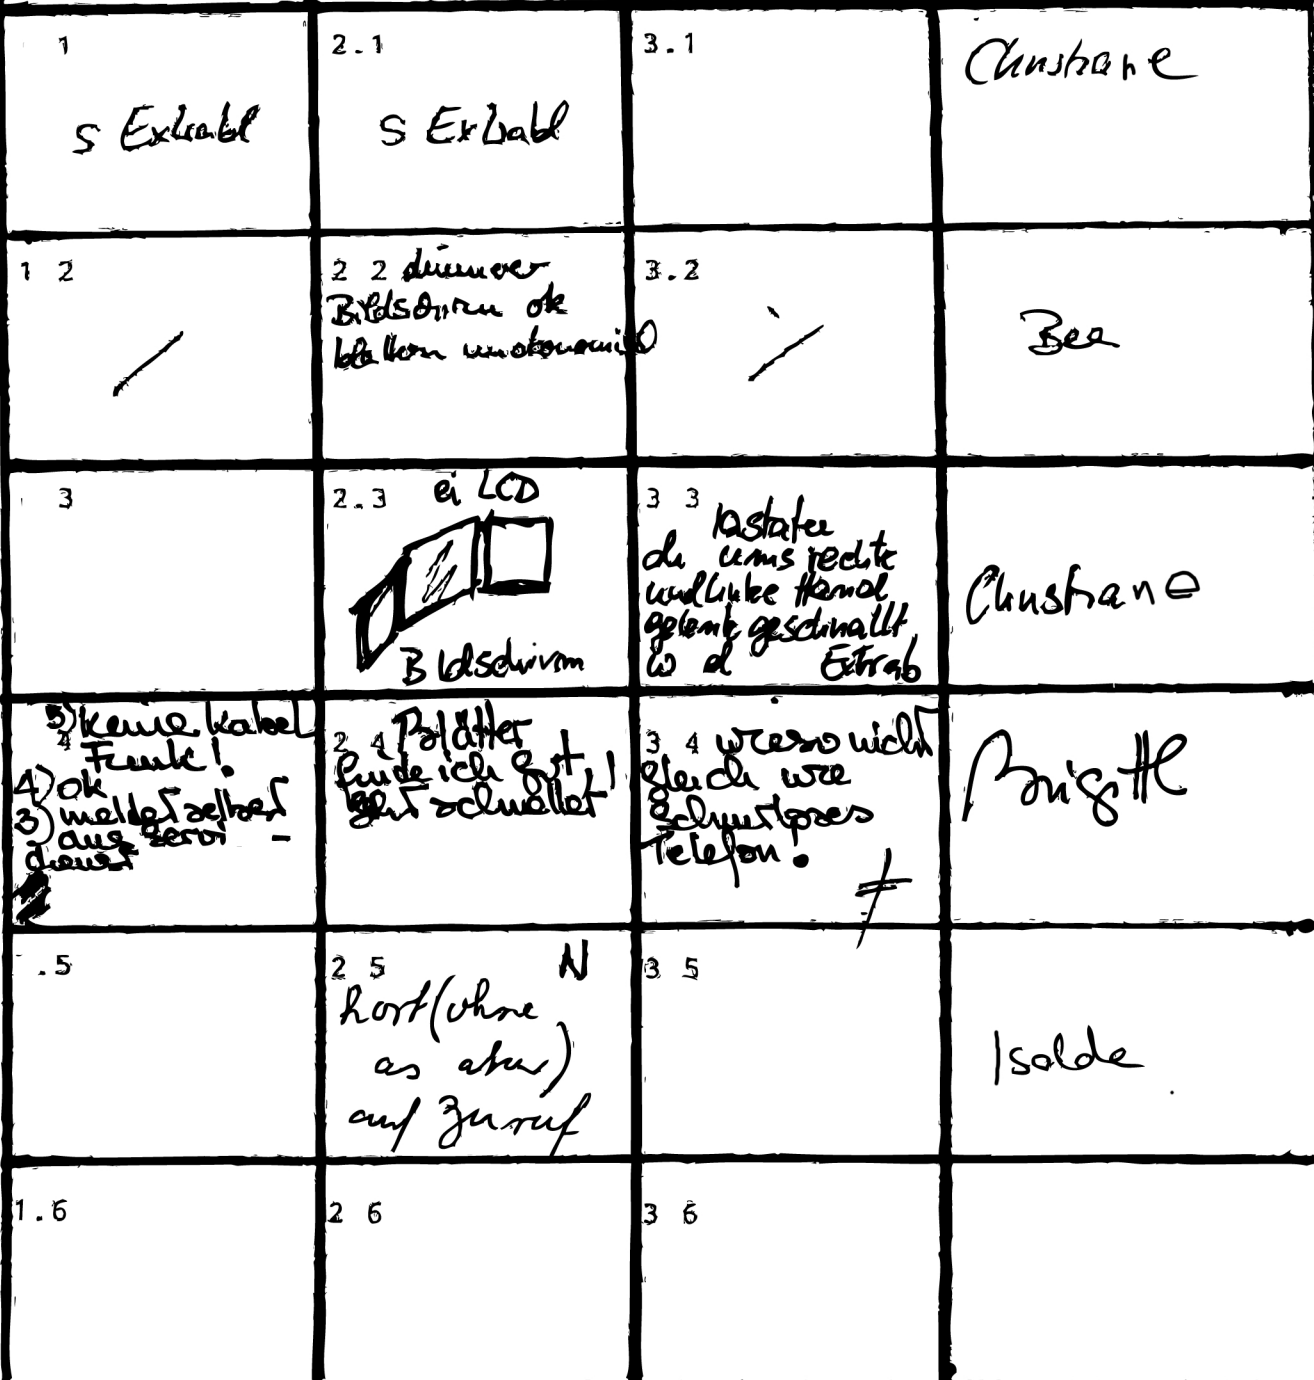 1
s Extrabl
2.1
s Extrabl
3.1
Christiane
1 2
2 2 dünner
Bildschirm ok
blättern unökonomisch
3.2
Bea
3
2.3
ei LCD
Bildschirm
3 3
Tastatur
die ums rechte
und linke Hand
gelenk geschnallt
Extrab
Christiane
5) keine Kabel
4
Funk!
4) ok
3) meldet selbst
aus Servi -
dienst
2 4 Blätter
finde ich gut!
geht schneller
3 4 wieso nicht
gleich wie
schnurloses
Telefon!
Brigitte
.5
2 5
N
hört (ohne
auf Zuruf
3 5
Isolde
1.6
2 6
3 6